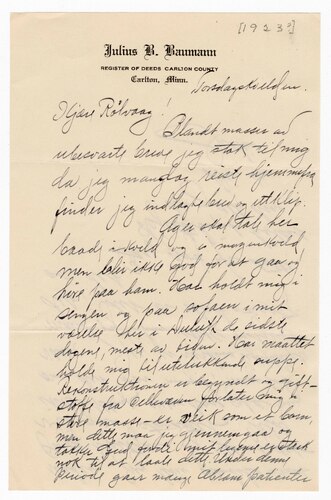 [1923?]
Julius B. Baumann
REGISTER OF DEEDS CARLTON COUNTY
Carlton, Minn.
Torsdagskvelden.
Kjære Rølvaag!
Blandt masser av
ubesvarte breve jeg stak til mig
da jeg mandag reiste hjemmefra
finder jeg indlagte brev og utklip.
Ager skal tale her
baade ikveld og imorgenkveld
men blir ikke god for at gaa og
høre paa ham. Har holdt mig i
sengen og paa sofaen i mit
værelse her i Duluth de sidste
dagene, meste av tiden. Har maattet
holde mig til utelukkende suppe.
Rekonstruktionen er begyndt og gift-
stoffe fra cellevæven forlater mig i
store masser – er veik som et barn,
men dette maa jeg gjennemgaa og
takker Gud fordi mit er sterk
nok til at taale dette. Under denne
periode gaar mange Abrams patienter